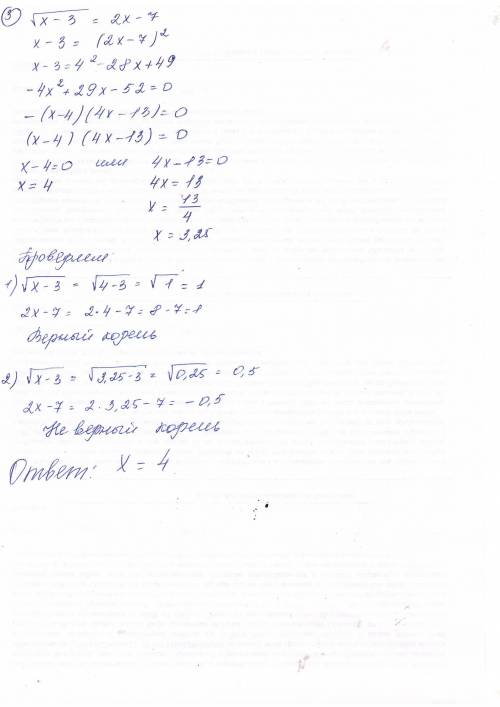 ③ √(x-3) = 2x-7
x-3 = (2x-7)²
x-3=4²-28x+49
-4x²+29x-52=0
-(x-4)(4x-13)=0
(x-4)(4x-13)=0
x-4=0 или 4x-13=0
x=4 4x=13
x = 13/4
x = 3,25
Проверяем:
1) √(x-3) = √(4-3) = √1 = 1
2x-7 = 2·4-7=8-7=1
Верный корень
2) √(x-3) = √(3,25-3) = √(0,25) = 0,5
2x-7 = 2·3,25-7 = -0,5
Не верный корень
Ответ: x = 4